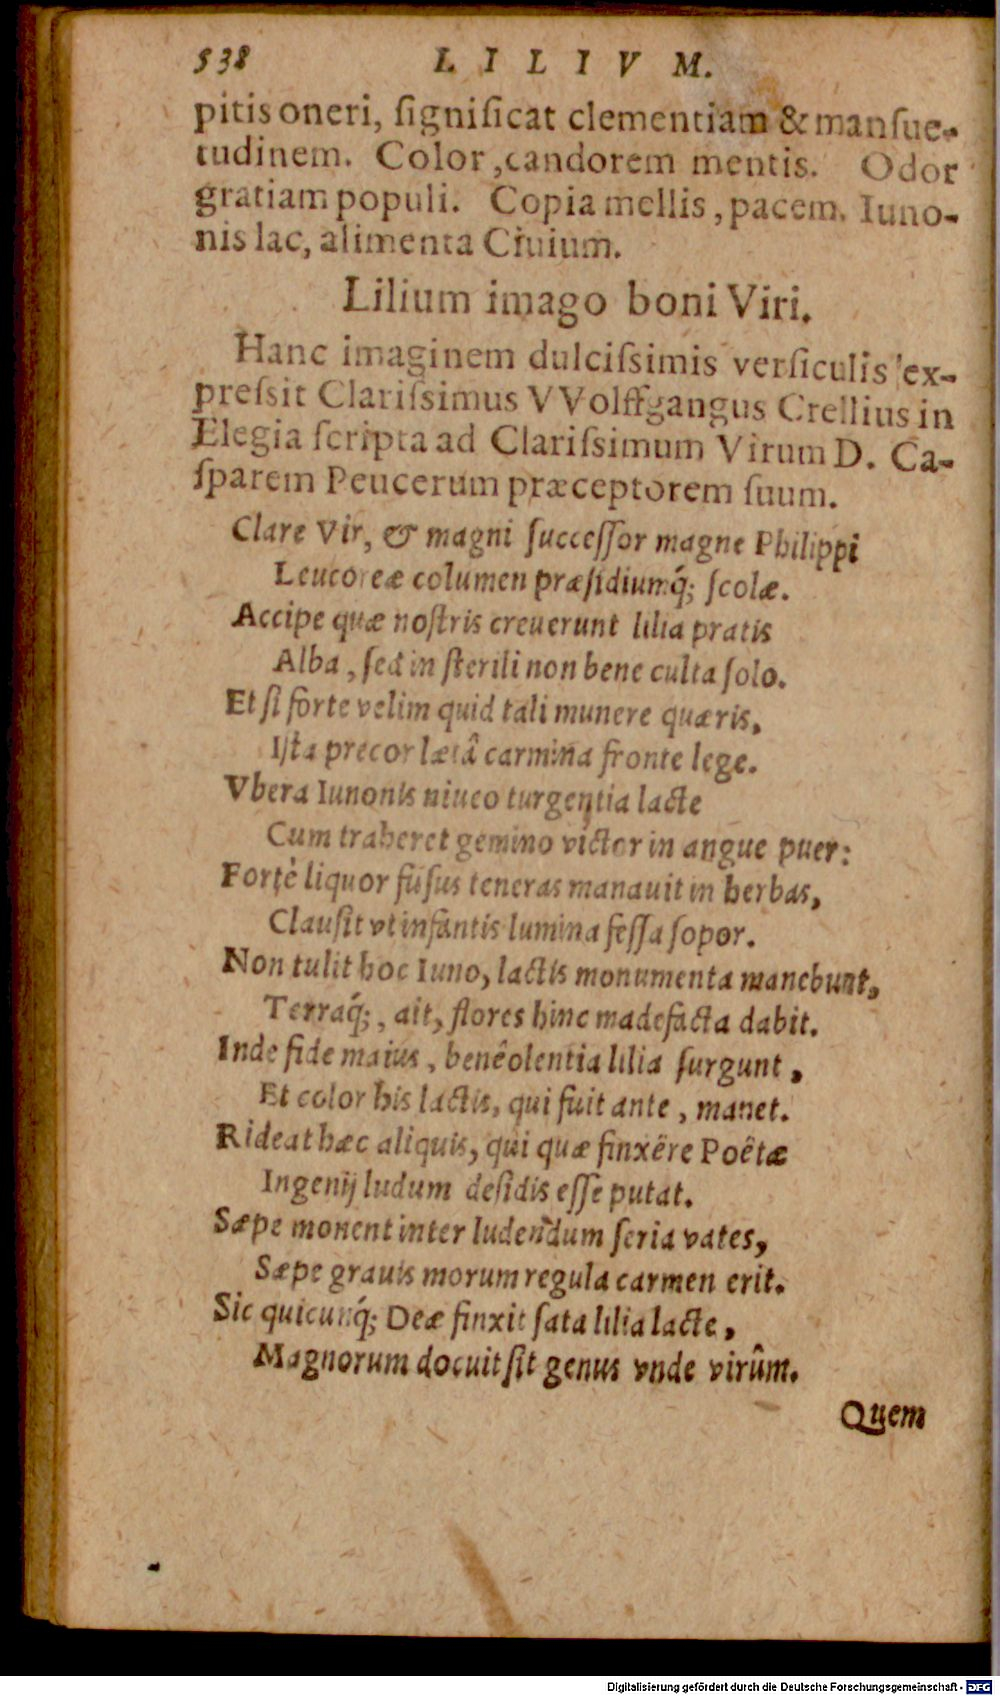 538 LILIVM.
pitis oneri, ſignificat clementiam & manſue-
tudinem. Color, candorem mentis. Odor
gratiam populi. Copia mellis, pacem. Iuno-
nis lac, alimenta Ciuium.
Lilium imago boni Viri.
Hanc imaginem dulciſsimis verſiculis ex-
preſsit Clariſsimus VVolffgangus Crellius in
Elegia ſcripta ad Clariſsimum Virum D. Ca-
ſparem Peucerum præceptorem ſuum.
Clare Vir, & magni ſucceſſor magne Philippi
Leucoreæ columen præſidiumq́; ſcolæ.
Accipe quæ noſtris creuerunt lilia pratis
Alba, ſed in ſterili non bene culta ſolo.
Et ſi forte velim quid tali munere quæris,
Iſta precor lætâ carmina fronte lege.
Vbera Iunonis niueo turgentia lacte
Cum traheret gemino victor in angue puer:
Fortè liquor fuſus teneras manauit in herbas,
Clauſit vt infantis lumina feſſa ſopor.
Non tulit hoc Iuno, lactis monumenta manebunt,
Terraq́;, ait, flores hinc madefacta dabit.
Inde fide maius, benêolentia lilia ſurgunt,
Et color his lactis, qui fuit ante, manet.
Rideat hæc aliquis, qui quæ finxêre Poêtæ
Ingenij ludum deſidis eſſe putat.
Sæpe monent inter ludendum ſeria vates,
Sæpe grauis morum regula carmen erit.
Sic quicunq́; Deæ finxit ſata lilia lacte,
Magnorum docuit ſit genus vnde virûm.
Quem
Digitalisierung gefördert durch die Deutsche Forschungsgemeinschaft - DFG